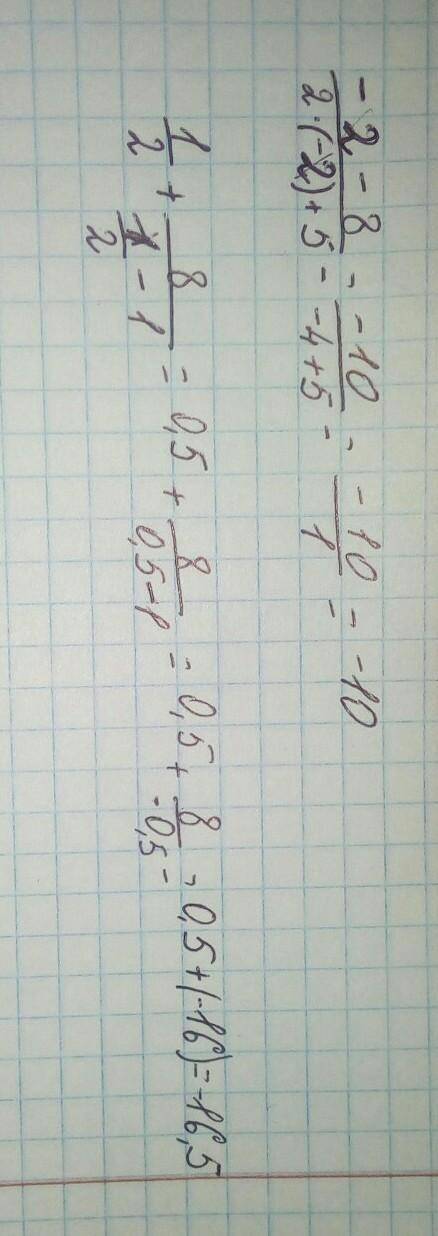 (-2-8)/(2·(-2)+5) = (-10)/(-4+5) = (-10)/1 = -10
1/2 + 8/(1/2 - 1) = 0,5 + 8/(0,5-1) = 0,5 + 8/(-0,5) = 0,5+(-16)=-16,5